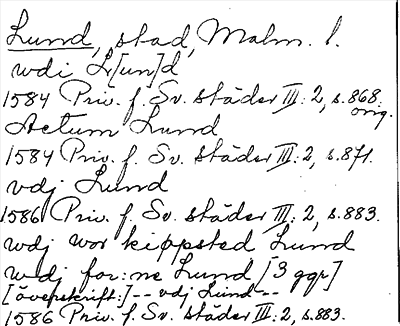 Lund, stad, Malm. l.
wdi L[un]d
1584 Priv. f. Sv. städer III: 2, s. 868.
orig.
Actum Lund
1584 Priv. f. Sv. städer III: 2, s. 871.
vdj Lund
1586 Priv. f. Sv. städer III: 2, s. 883.
wdj wor kiøpsted Lund
wdj for:ne Lund [3 ggr]
[överskrift:] -- vdj Lund --
1586 Priv. f. Sv. städer III: 2, s. 883.